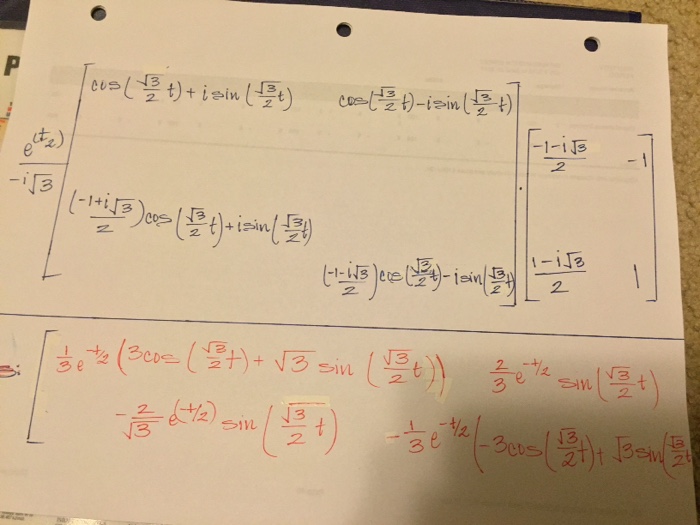 P
cos(√3/2 t) + i sin(√3/2 t)    cos(√3/2 t) - i sin(√3/2 t)
e^(t/2)/(-i√3)    (-1-i√3)/2    -1
((-1+i√3)/2) cos(√3/2 t) + i sin(√3/2 t)
((-1-i√3)/2) cos(√3/2 t) - i sin(√3/2 t)    (1-i√3)/2    1
s: 1/3 e^-t/2 (3cos(√3/2 t) + √3 sin(√3/2 t))    2/3 e^-t/2 sin(√3/2 t)
-2/√3 e^(-t/2) sin(√3/2 t)    -1/3 e^-t/2 (-3cos(√3/2 t) + √3 sin(√3/2 t